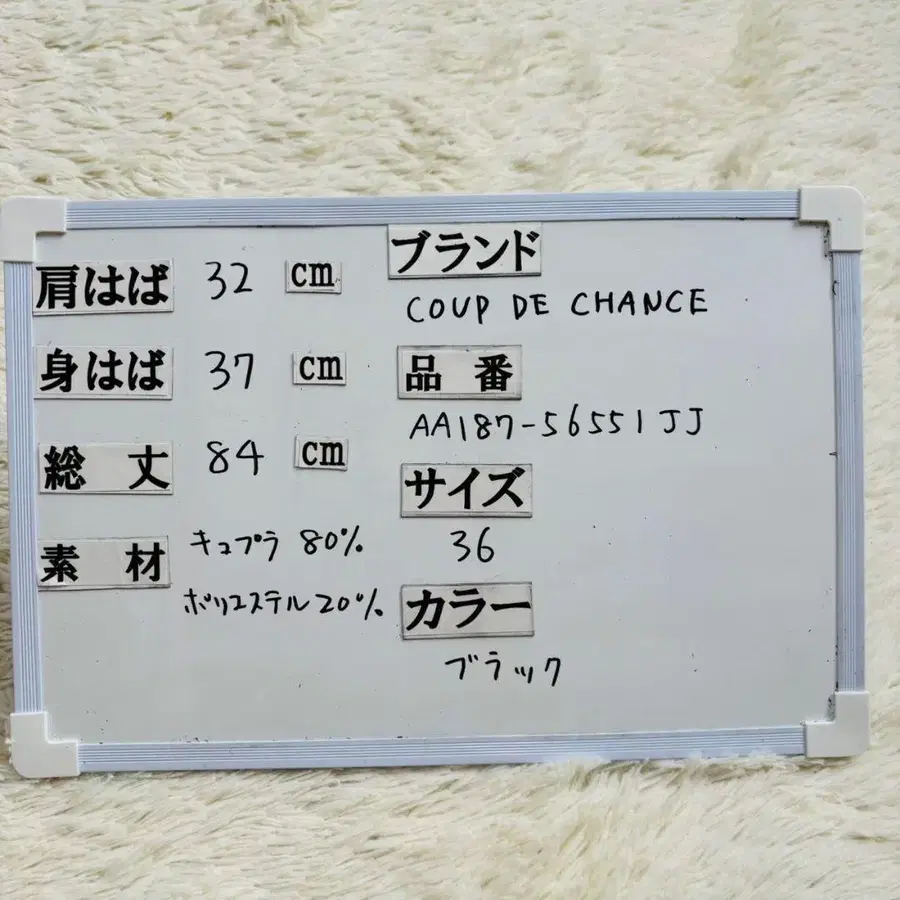 肩はば 32 cm
身はば 37 cm
総丈 84 cm
素材 キュプラ 80%
ポリエステル 20%
ブランド
COUP DE CHANCE
品番
AA187-56551JJ
サイズ
36
カラー
ブラック